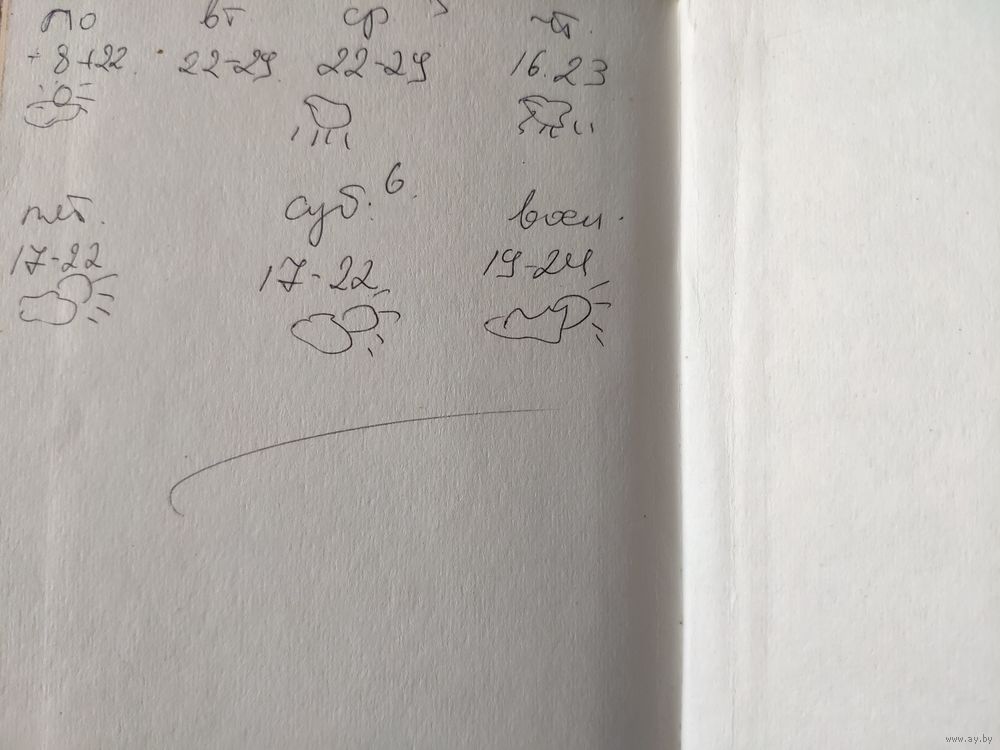 по вт ср чт.
+8+22. 22-29. 22-29 16.23
пят. суб. 6. воск.
17-22 17-22 19-24
www.ay.by